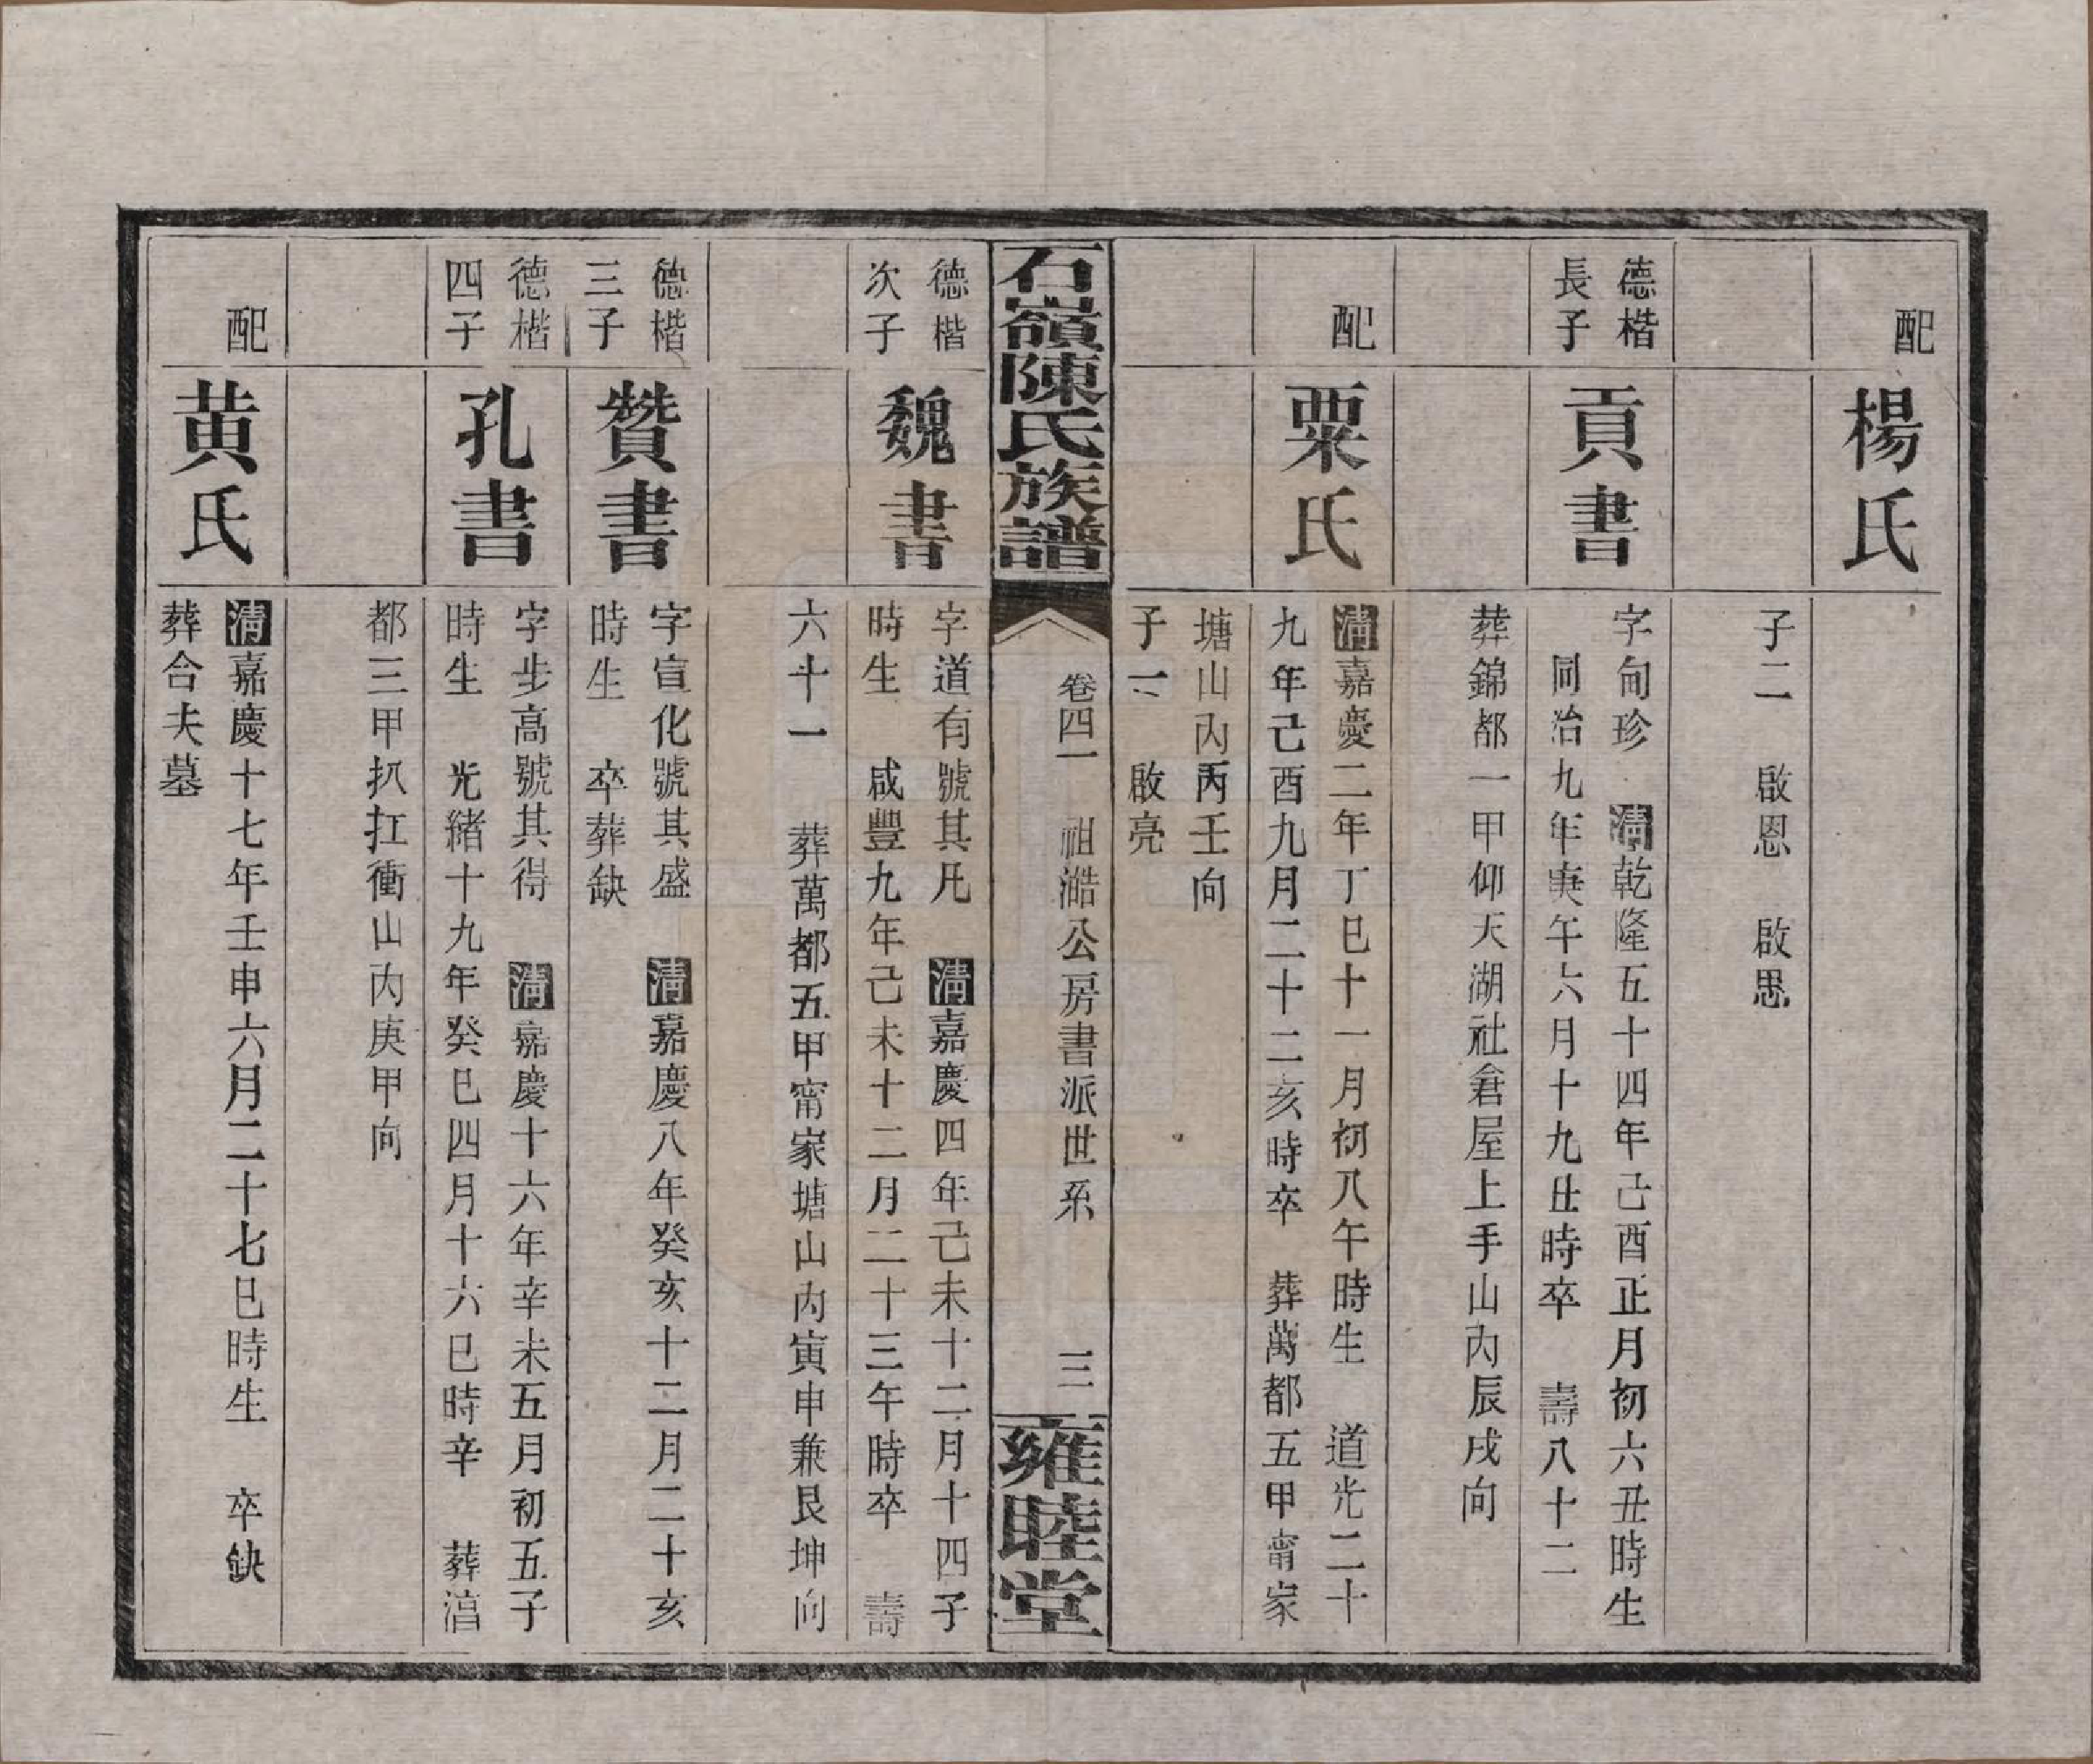 配
楊氏
子二　啟恩　啟思
德楷
長子
貢書
字甸珍　清乾隆五十四年己酉正月初六丑時生
同治九年庚午六月十九丑時卒　壽八十二
葬錦都一甲仰天湖社倉屋上手山內辰戌向
配
粟氏
清嘉慶二年丁巳十一月初八午時生　道光二十
九年己酉九月二十二亥時卒　葬萬都五甲甯家
塘山內丙壬向
子一　啟亮
石嶺陳氏族譜
卷四一　祖澔公房書派世系　三
雍睦堂
德楷
次子
魏書
字道有號其凡　清嘉慶四年己未十二月十四子
時生　咸豐九年己未十二月二十三午時卒　壽
六十一　葬萬都五甲甯家塘山內寅申兼艮坤向
德楷
三子
贊書
字宣化號其盛　清嘉慶八年癸亥十二月二十亥
時生　卒葬缺
德楷
四子
孔書
字步高號其得　清嘉慶十六年辛未五月初五子
時生　光緒十九年癸巳四月十六巳時辛　葬湻
都三甲扒扛衝山內庚甲向
配
黃氏
清嘉慶十七年壬申六月二十七巳時生　卒缺
葬合夫墓